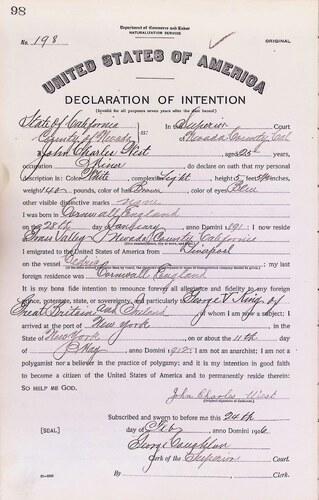 98
Department of Commerce and Labor
NATURALIZATION SERVICE
No. 198
ORIGINAL
UNITED STATES OF AMERICA
DECLARATION OF INTENTION
(Invalid for all purposes seven years after the date hereof)
State of California
County of Nevada
ss:
In Superior Court
of Nevada County Cal
I, John Charles West, aged 25 years,
occupation Miner, do declare on oath that my personal
description is: Color White, complexion Light, height 5 feet inches,
weight 140 pounds, color of hair Brown, color of eyes Blue
other visible distinctive marks none
I was born in Cornwall, England
on the 28th day of January, anno Domini 1891; I now reside
at Grass Valley, Nevada County, California
I emigrated to the United States of America from Liverpool
on the vessel Cedric; my last
foreign residence was Cornwall, England
It is my bona fide intention to renounce forever all allegiance and fidelity to any foreign
prince, potentate, state, or sovereignty, and particularly to George V King of
Great Britain and Ireland, of whom I am now a subject; I
arrived at the port of New York, in the
State of New York, on or about the 11th day
of May, anno Domini 1912; I am not an anarchist; I am not a
polygamist nor a believer in the practice of polygamy; and it is my intention in good faith
to become a citizen of the United States of America and to permanently reside therein:
SO HELP ME GOD.
John Charles West
(Original signature of declarant)
Subscribed and sworn to before me this 24th
[SEAL] day of Feb, anno Domini 1916
George Coughlan
Clerk of the Superior Court.
By , Clerk.